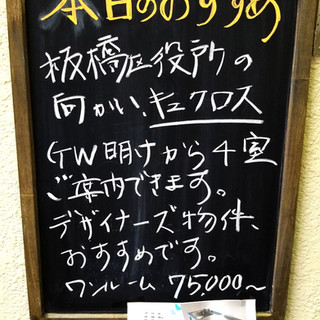 本日のおすすめ
板橋区役所の
向かい、キュクロス
GW明けから4室
ご案内できます。
デザイナーズ物件、
おすすめです。
ワンルーム 75,000〜